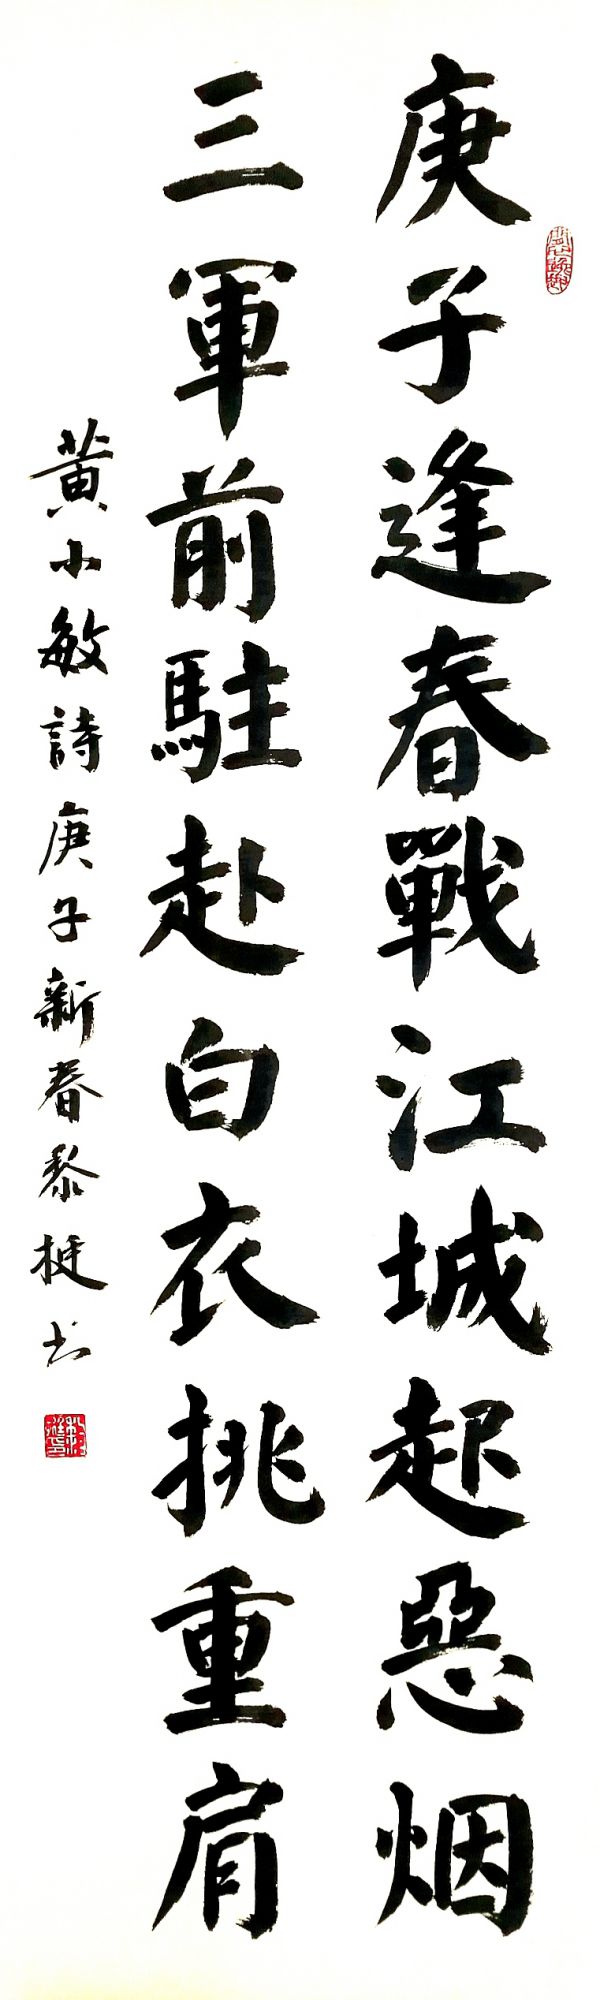 庚子逢春戰江城起惡烟
三軍前駐赴白衣挑重肩
黃小敏詩庚子新春黎挺书